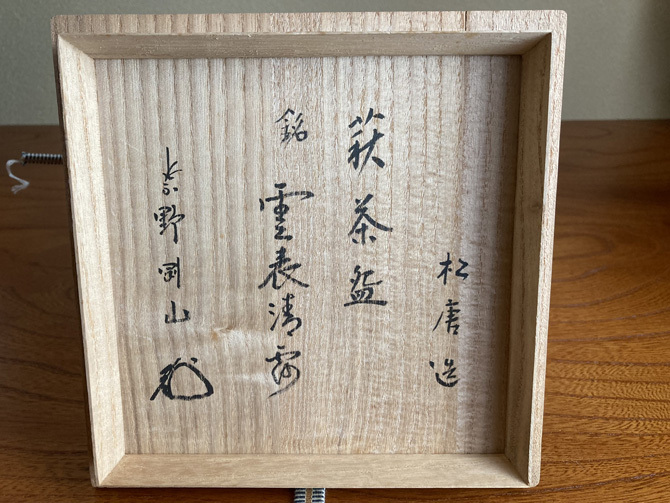 松唐造
萩茶盌
銘 雲表清露
野岡山